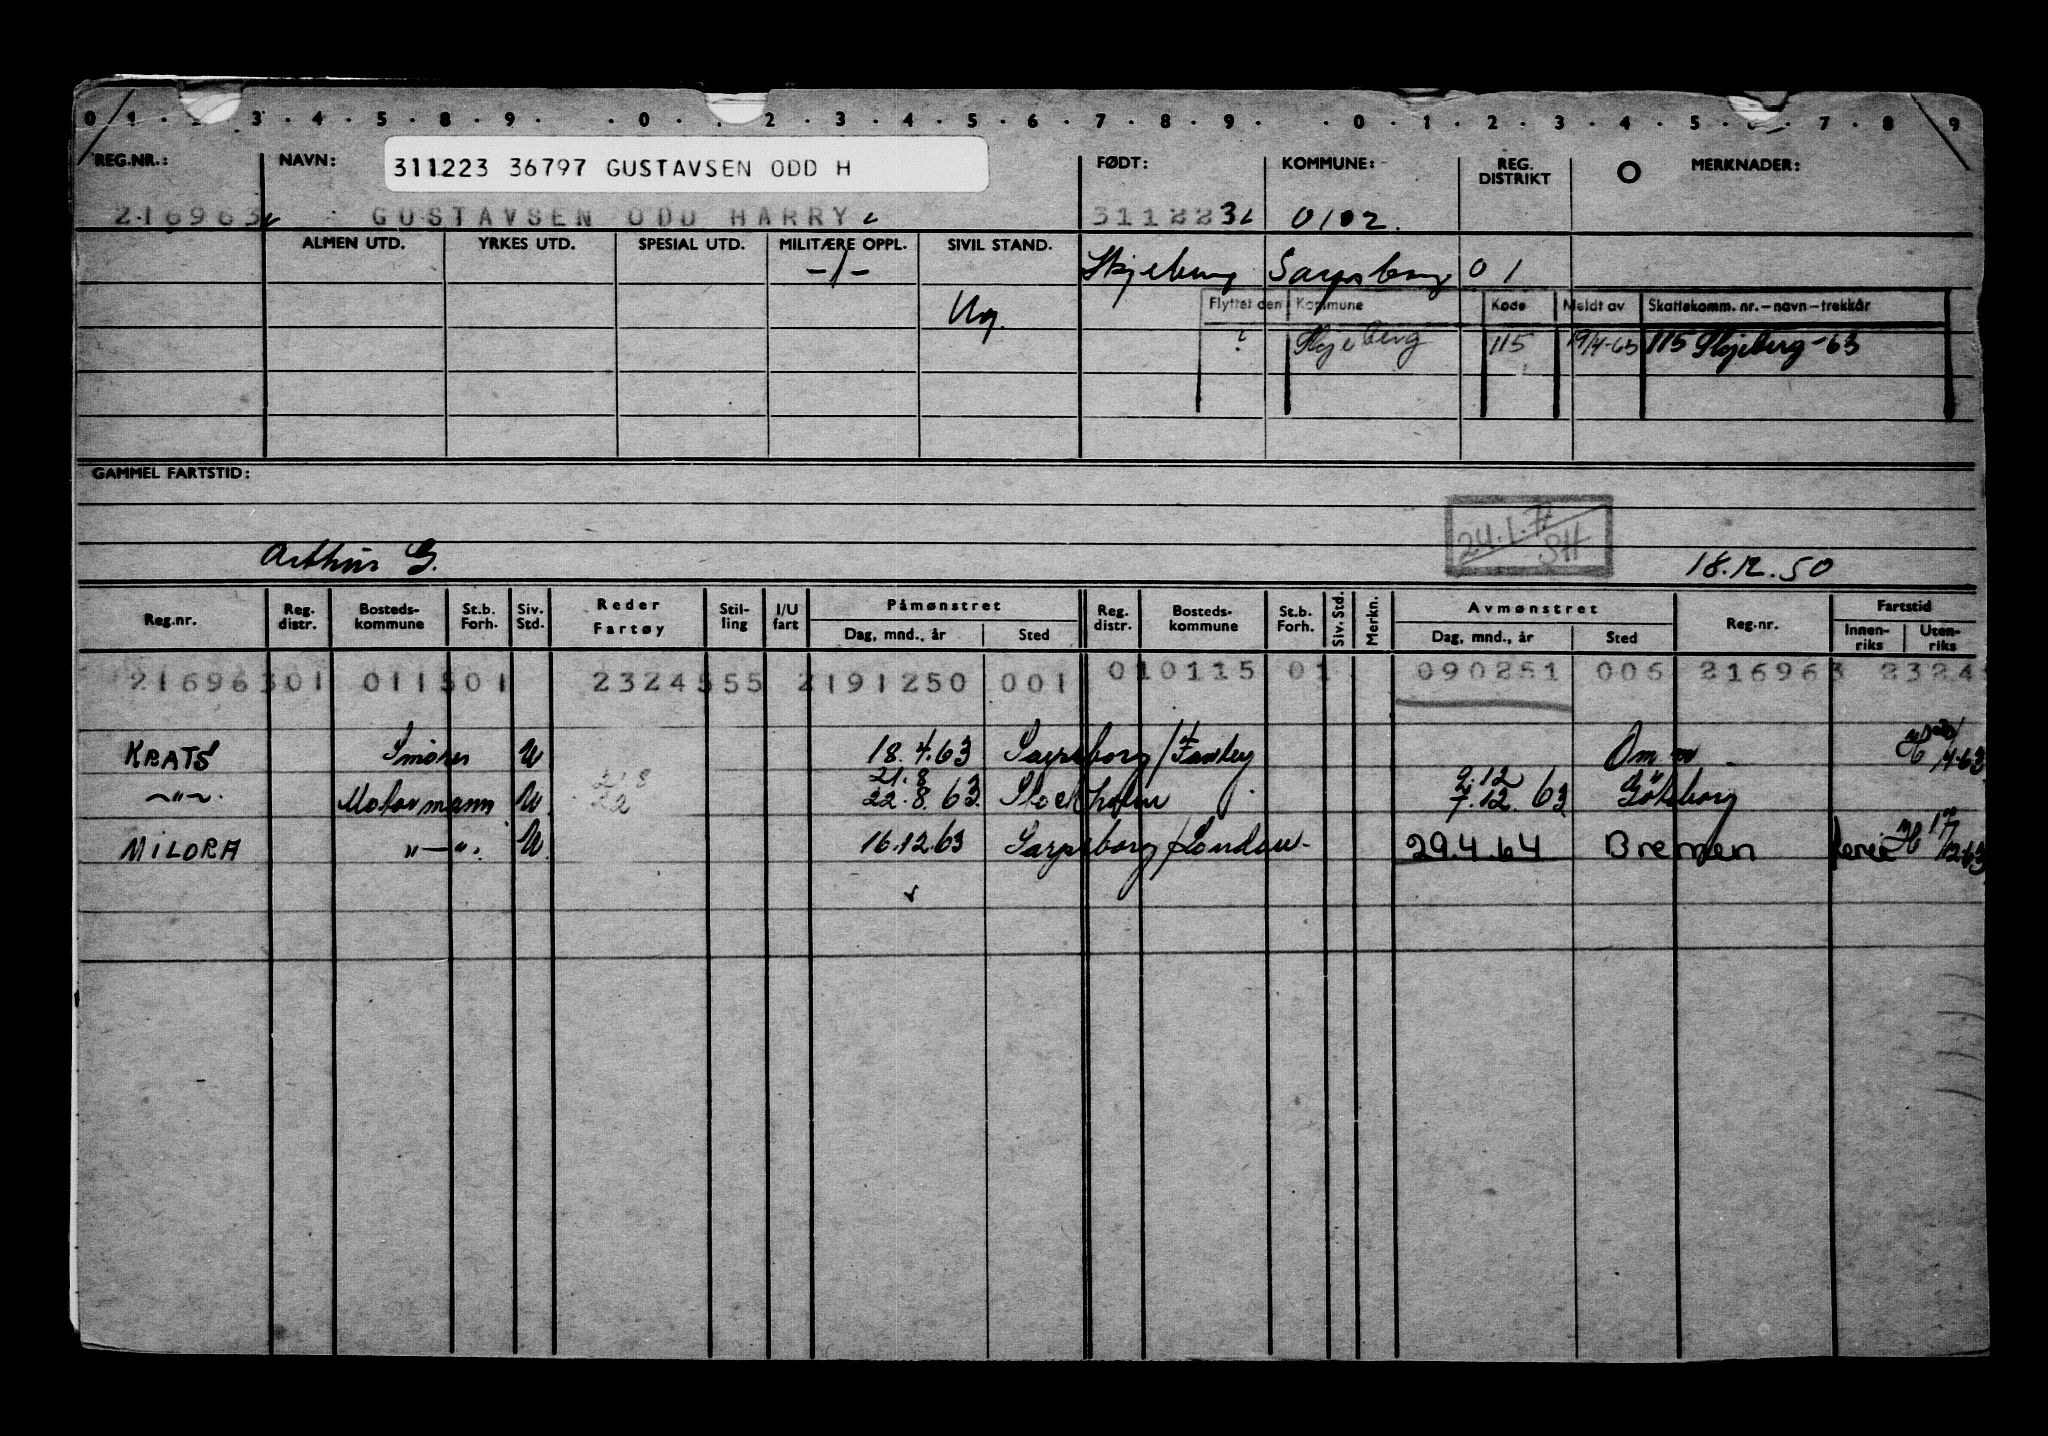 0 1 . 2 . 3 . 4 . 5 . 8 . 9 . . 0 . . 2 . 3 . 4 . 5 . 6 . 7 . 8 . 9 . . 0 . 1 . 2 . 3 . 4 . 5 . 6 . 7 . 8 9
REG.NR.: NAVN: 311223 36797 GUSTAVSEN ODD H FØDT: KOMMUNE: REG. DISTRIKT O MERKNADER:
216963 GUSTAVSEN ODD HARRY 311223 0102.
ALMEN UTD. YRKES UTD. SPESIAL UTD. MILITÆRE OPPL. SIVIL STAND.
-1- Skjeberg Sarpsborg 01
Ug. Flyttet den Kommune Kode Meldt av Skattekomm. nr. – navn – trekkår
? Skjeberg 115 19/4-63 115 Skjeberg -63
GAMMEL FARTSTID:
24.1.77 SH
Arthur G. 18.12.50
Reg.nr. Reg. distr. Bosteds-kommune St.b. Forh. Siv. Std. Reder Fartøy Stil-ling I/U fart Påmønstret Reg. distr. Bosteds-kommune St.b. Forh. Siv. Std. Merkn. Avmønstret Reg.nr. Fartstid
Dag, mnd., år Sted Dag, mnd., år Sted Innen-riks Uten-riks
216963 01 0115 01 2324555 2 191250 001 01 0115 01 090251 006 216963 2324
KRATS Smører U 18.4.63 Sarpsborg /
21.8 9.12
—"—. Motormann U 22.8.63 Stockholm 7.12.63 Göteborg
MILORA "—". U 16.12.63 Sarpsborg/London 29.4.64 Bremen ferie